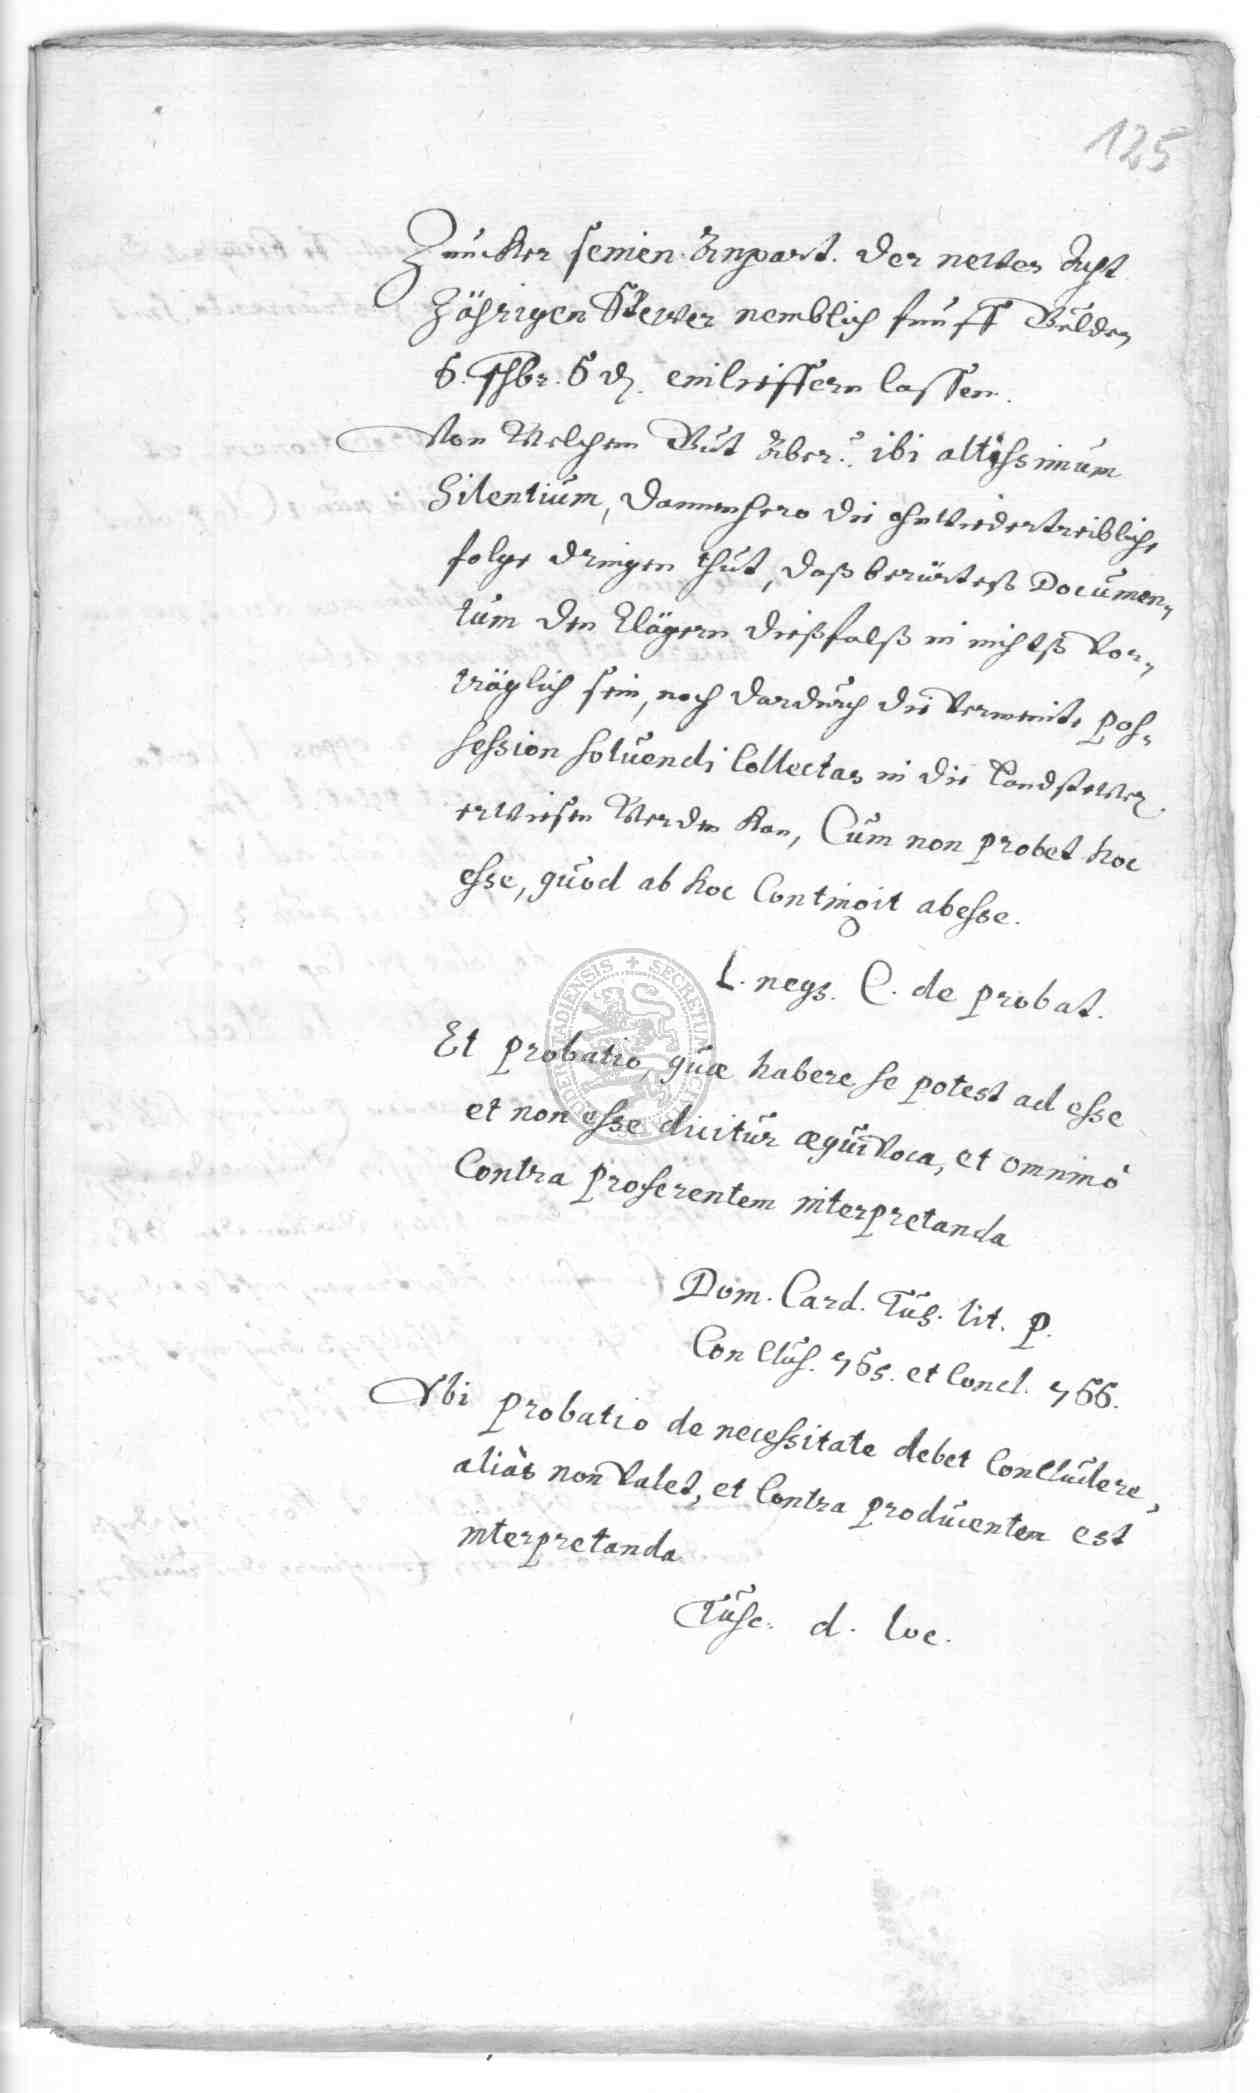 125
Zuucker seinen Anpart. der newer Acht
Jährigen Stewer nemblich fünff Gulden
6. ßhbr. 6 d. einlieffern lassen.
Von Welchem Gut Aber: ibi altissimum
Silentium, dannenhero die ohnWiedertreibliche
folge dringen thut, daß berürteß Documen-
tum den Klägern dießfalß in nichtß Vor-
träglich sein, noch dardurch die Vermeinte pos-
session solvendi Collectas in die Landstewer
erWiesen Werden kan, Cum non probet hoc
esse, quod ab hoc Contingit abesse.
L. negs. C. de probat.
Et probatio, quae habere se potest ad esse
et non esse dicitur aequiVoca, et omninò
Contra proferentem interpretanda
Dom. Card. Tus. lit. P.
Conclus. 765. et Concl. 766.
Ubi probatio de necessitate debet Concludere,
aliàs non Valet, et Contra producentem est
interpretanda
Tusc. d. loc.
SECRETUM CIVIUM UDERSTADIENSIS